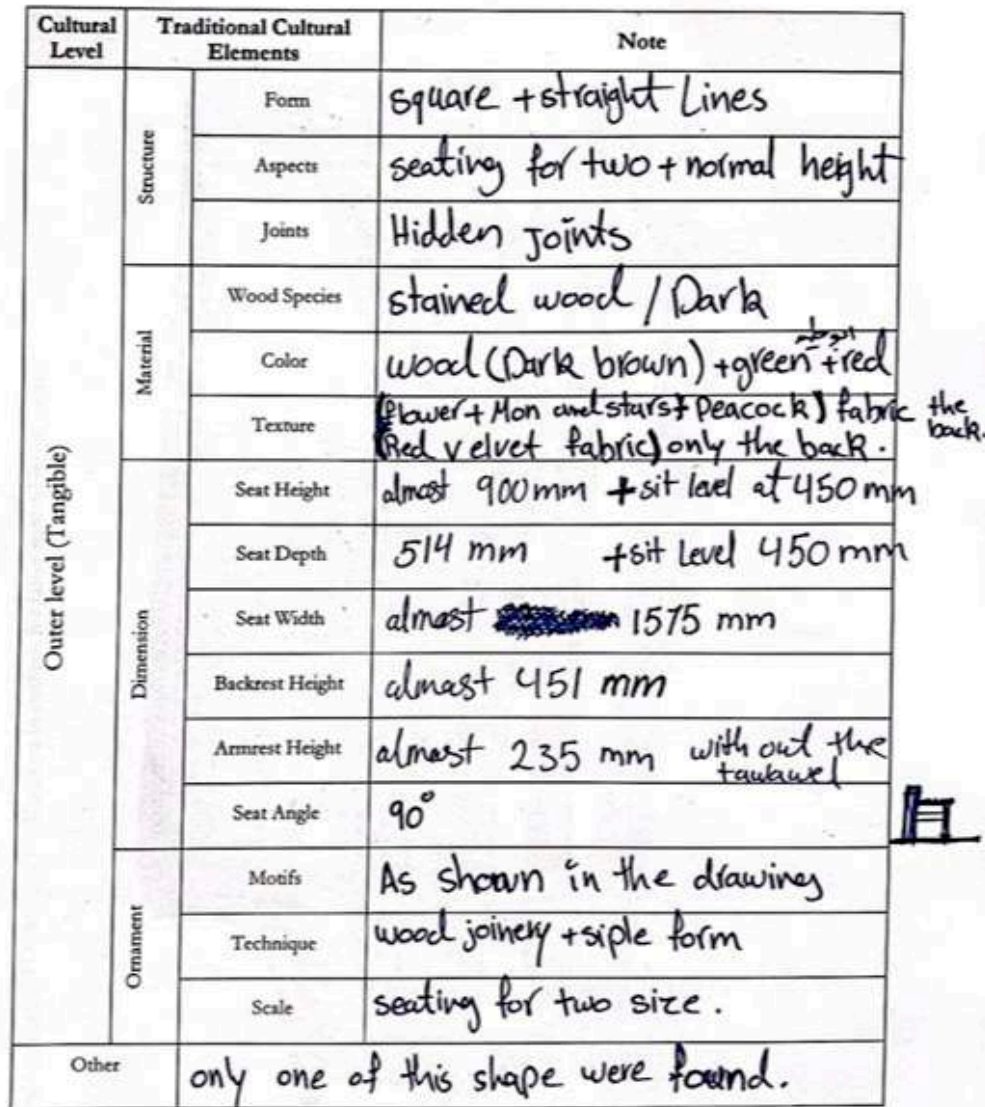 Cultural Level
Traditional Cultural Elements
Note
Outer level (Tangible)
Structure
Form
square + straight Lines
Aspects
seating for two + normal height
Joints
Hidden joints
Material
Wood Species
stained wood / Dark
Color
wood (Dark brown) + green + red
Texture
(flower + Mon and stars + Peacock) fabric the back.
(Red velvet fabric) only the back.
Dimension
Seat Height
almost 900 mm + sit level at 450 mm
Seat Depth
514 mm + sit Level 450 mm
Seat Width
almast 1575 mm
Backrest Height
almast 451 mm
Armrest Height
almast 235 mm with out the
Seat Angle
90°
Ornament
Motifs
As shown in the drawings
Technique
wood joinery + siple form
Scale
seating for two size.
Other
only one of this shape were found.